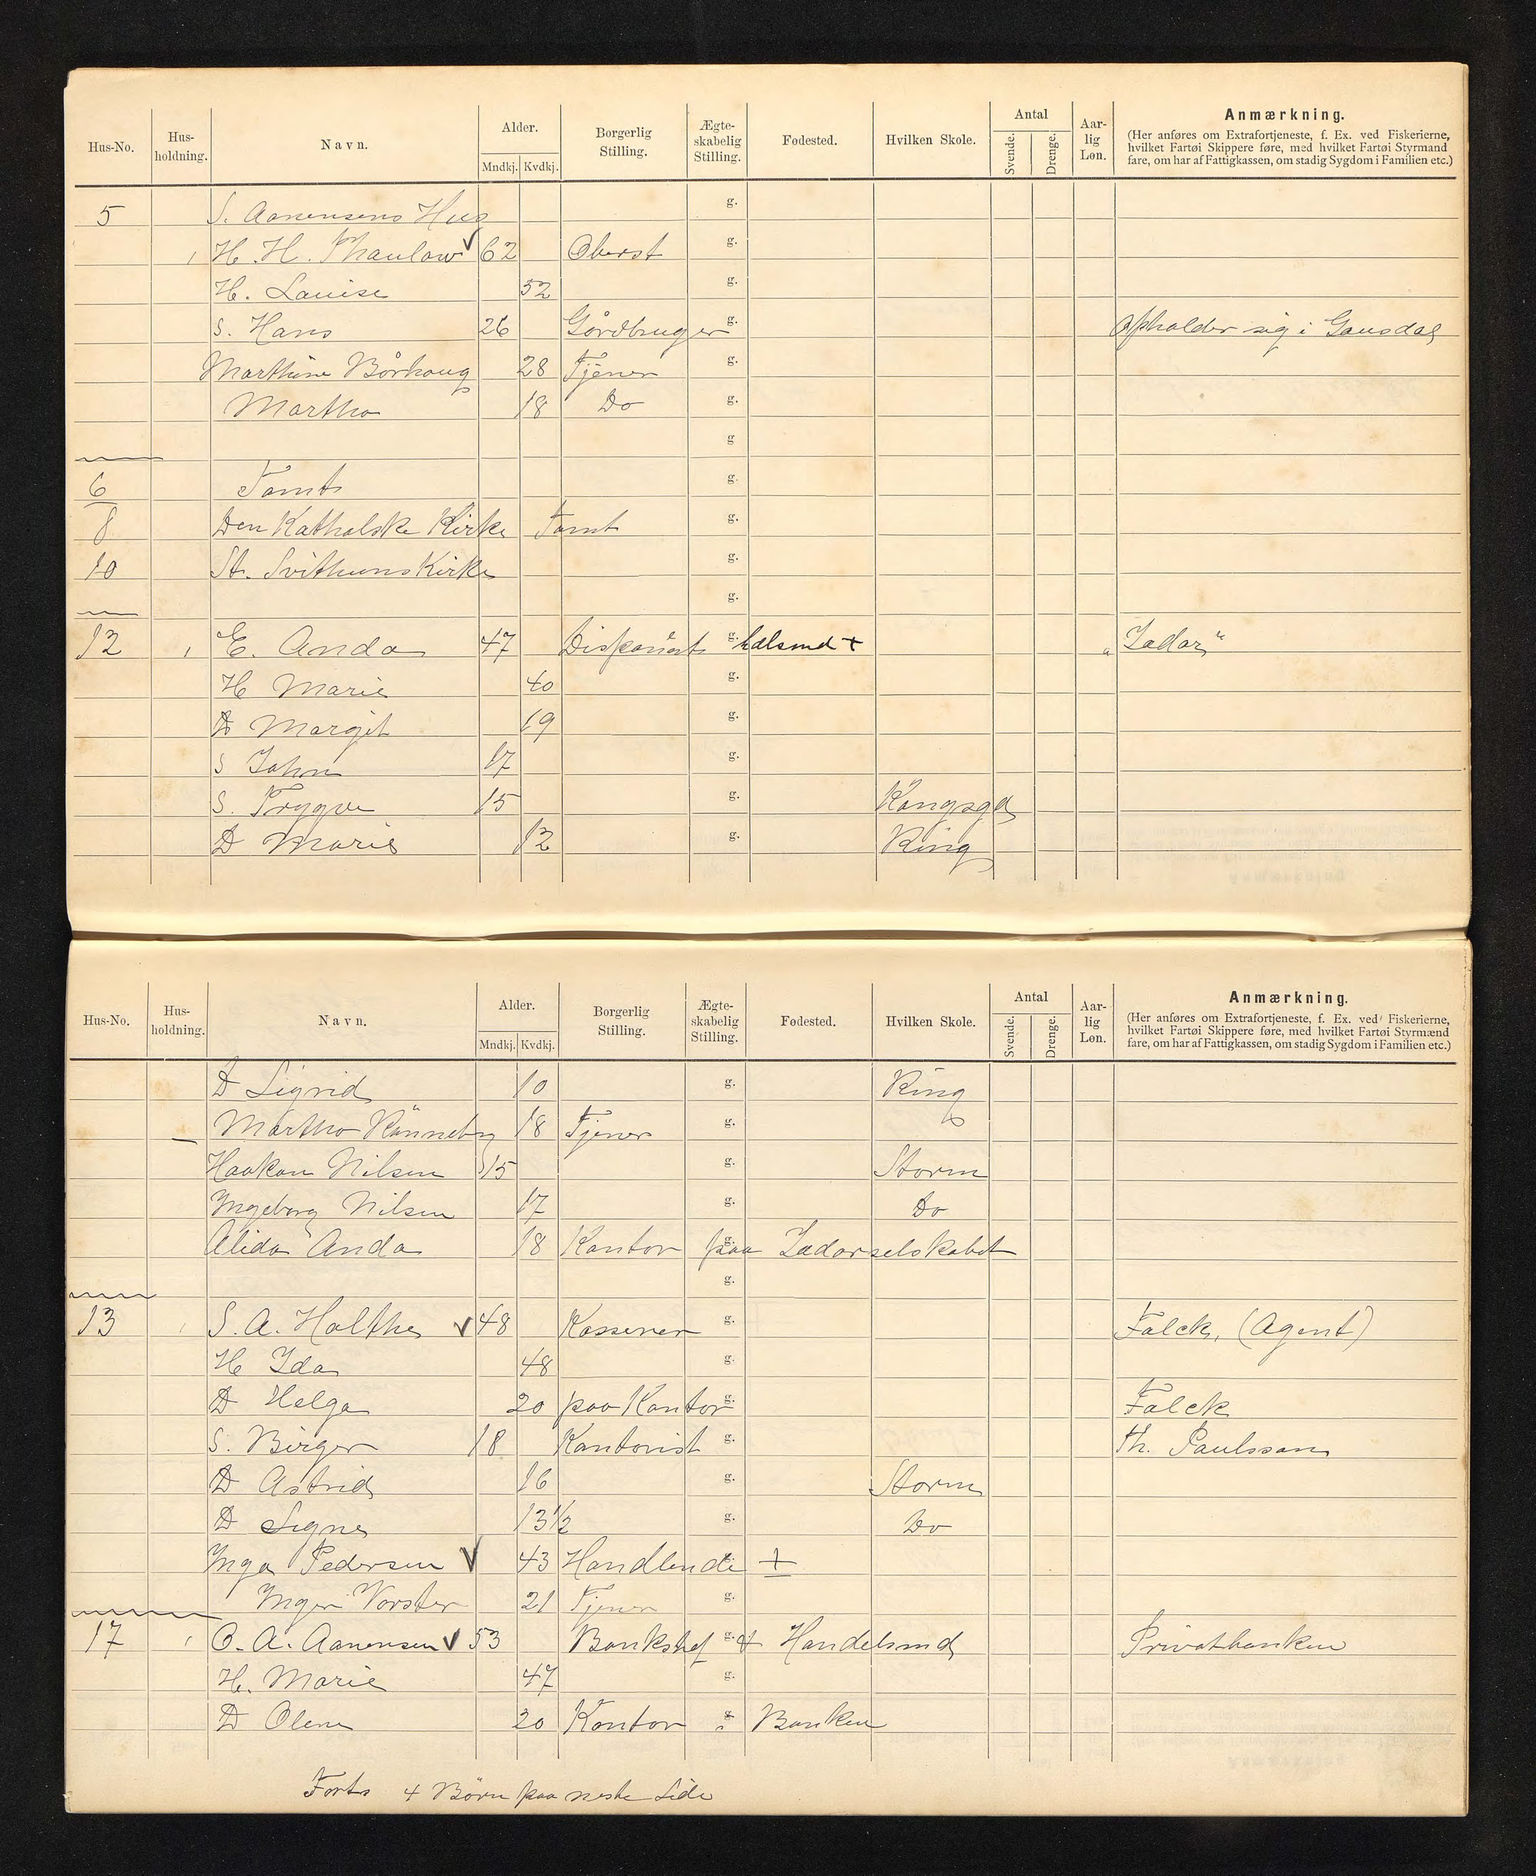 Hus-No. Hus-holdning. Navn. Alder. Mndkj. Kvdkj. Borgerlig Stilling. Ægte-skabelig Stilling. Fødested. Hvilken Skole. Antal Svende. Drenge. Aar-lig Løn. Anmærkning.
(Her anføres om Extrafortjeneste, f. Ex. ved Fiskerierne,
hvilket Fartøi Skippere føre, med hvilket Fartøi Styrmand
fare, om har af Fattigkassen, om stadig Sygdom i Familien etc.)
5 S. Aanensens Hus g.
1 H. H. Thaulow ✓ 62 Oberst g.
H. Louise 52 g.
S. Hans 26 Gårdbruger g. Opholder sig i Gausdal
Marthine Bårhoug 28 Tjener g.
Martha 18 Do g.
g
6 Tomt g.
8 Den Katholske Kirke Tomt g.
10 St. Svithuns Kirke g.
g.
12 1 E. Anda 47 Disponent g. + "Jædar"
H Marie 40 g.
D Margit 19 g.
S John 17 g.
S. Trygve 15 g. Kongsgd
D Marie 12 g. Ring
Hus-No. Hus-holdning. Navn. Alder. Mndkj. Kvdkj. Borgerlig Stilling. Ægte-skabelig Stilling. Fødested. Hvilken Skole. Antal Svende. Drenge. Aar-lig Løn. Anmærkning.
(Her anføres om Extrafortjeneste, f. Ex. ved Fiskerierne,
hvilket Fartøi Skippere føre, med hvilket Fartøi Styrmænd
fare, om har af Fattigkassen, om stadig Sygdom i Familien etc.)
D Sigrid 10 g. Ring
Martha Rønneberg 18 Tjener g.
Haakon Nilsen 15 g. Storm
Ingeborg Nilsen 17 g. Do
Alida Anda 18 Kontor g. paa Jædarselskabet
g.
13 1 S. A. Holthe ✓ 48 Kasserer g. Falck, (Agent)
H Ida 48 g.
D Helga 20 paa Kontor g. Falck
S. Birger 18 Kontorist g. Th. Paulsson
D Astrid 16 g. Storm
D Signe 13 1/2 g. Do
Inga Pedersen ✓ 43 Handlende g. +
Inger Vorster 21 Tjener g.
17 1 O. A. Aanensen ✓ 53 Bankchef g. + Handelsmd Privatbanken
H. Marie 47 g.
D Olene 20 Kontor g. i Banken
Forts 4 Børn paa neste Side